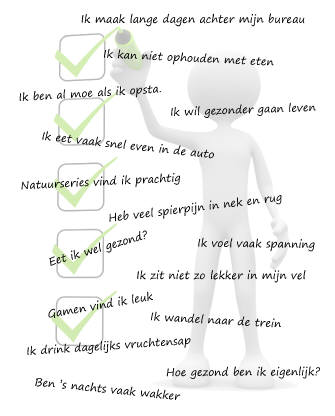 Ik maak lange dagen achter mijn bureau
Ik kan niet ophouden met eten
Ik ben al moe als ik opsta.
Ik wil gezonder gaan leven
Ik eet vaak snel even in de auto
Natuurseries vind ik prachtig
Heb veel spierpijn in nek en rug
Eet ik wel gezond?
Ik voel vaak spanning
Ik zit niet zo lekker in mijn vel
Gamen vind ik leuk
Ik wandel naar de trein
Ik drink dagelijks vruchtensap
Hoe gezond ben ik eigenlijk?
Ben 's nachts vaak wakker